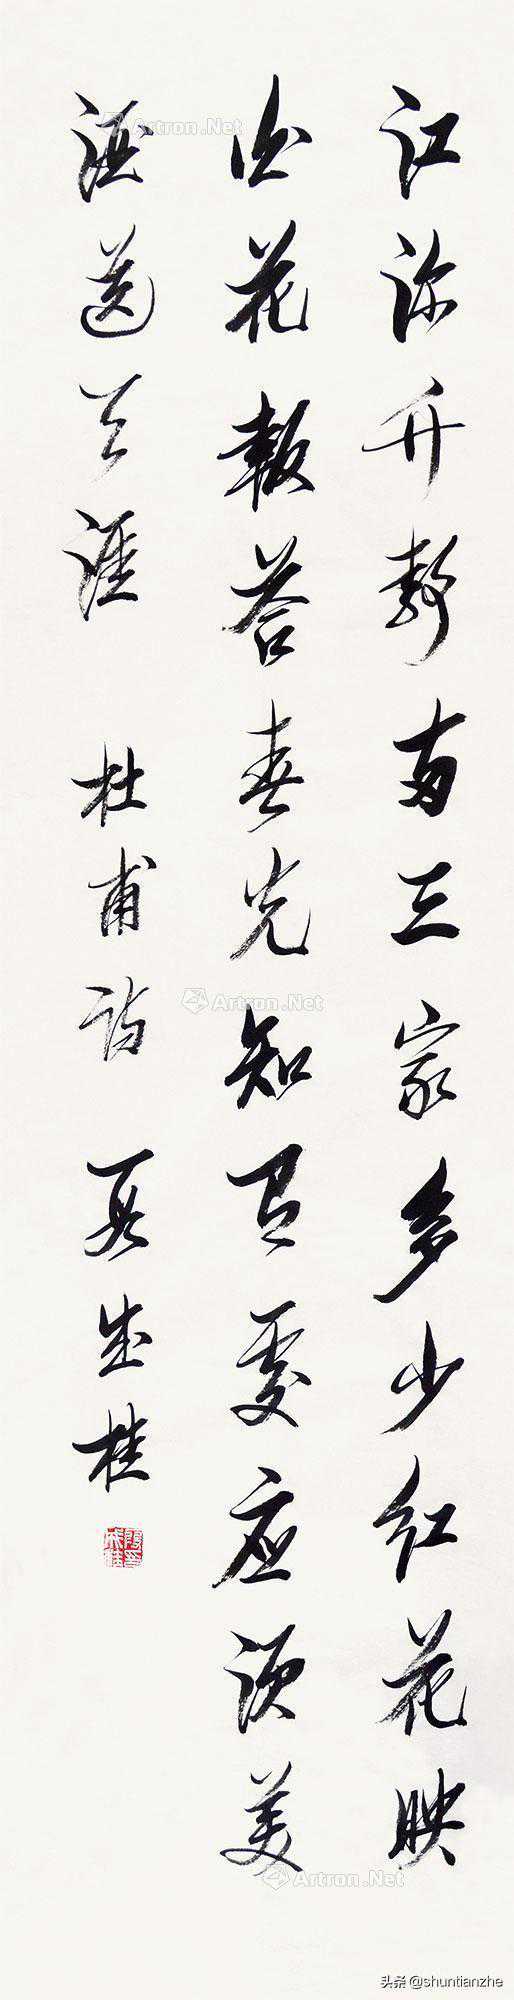 江深竹静两三家多少红花映
白花報答春光知有處应须美
酒送生涯 杜甫诗 段成桂
Artron.Net
Artron.Net
Artron.Net
头条@shuntianzhe